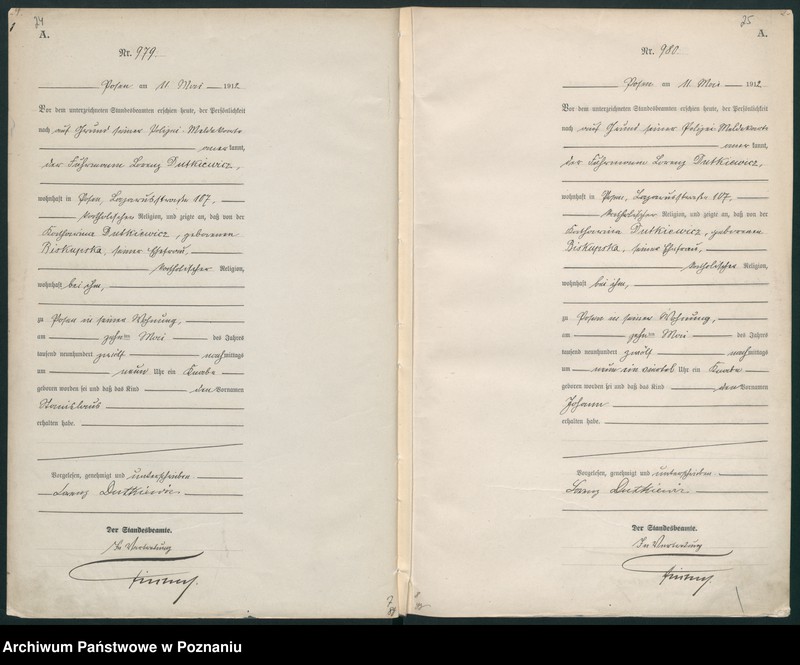 24
A.
Nr. 979
Posen am 11. Mai 1912
Vor dem unterzeichneten Standesbeamten erschien heute, der Persönlichkeit
nach auf Grund seiner Polizei-Meldekarte
anerkannt,
der Fuhrmann Lorenz Dutkiewicz,
wohnhaft in Posen, Lazarusstraße 107,
katholischer Religion, und zeigte an, daß von der
Katharina Dutkiewicz, geborenen
Biskupska, seiner Ehefrau,
katholischer Religion,
wohnhaft bei ihm,
zu Posen in seiner Wohnung,
am zehnten Mai des Jahres
tausend neunhundert zwölf nachmittags
um neun Uhr ein Knabe
geboren worden sei und daß das Kind den Vornamen
Stanislaus
erhalten habe.
Vorgelesen, genehmigt und unterschrieben
Lorenz Dutkiewicz.
Der Standesbeamte.
In Vertretung
25
A.
Nr. 980
Posen am 11. Mai 1912
Vor dem unterzeichneten Standesbeamten erschien heute, der Persönlichkeit
nach auf Grund seiner Polizei-Meldekarte
anerkannt,
der Fuhrmann Lorenz Dutkiewicz,
wohnhaft in Posen, Lazarusstraße 107,
katholischer Religion, und zeigte an, daß von der
Katharina Dutkiewicz, geborenen
Biskupska, seiner Ehefrau,
katholischer Religion,
wohnhaft bei ihm,
zu Posen in seiner Wohnung,
am zehnten Mai des Jahres
tausend neunhundert zwölf nachmittags
um neun ein viertel Uhr ein Knabe
geboren worden sei und daß das Kind den Vornamen
Johann
erhalten habe.
Vorgelesen, genehmigt und unterschrieben
Lorenz Dutkiewicz
Der Standesbeamte.
In Vertretung
Archiwum Państwowe w Poznaniu